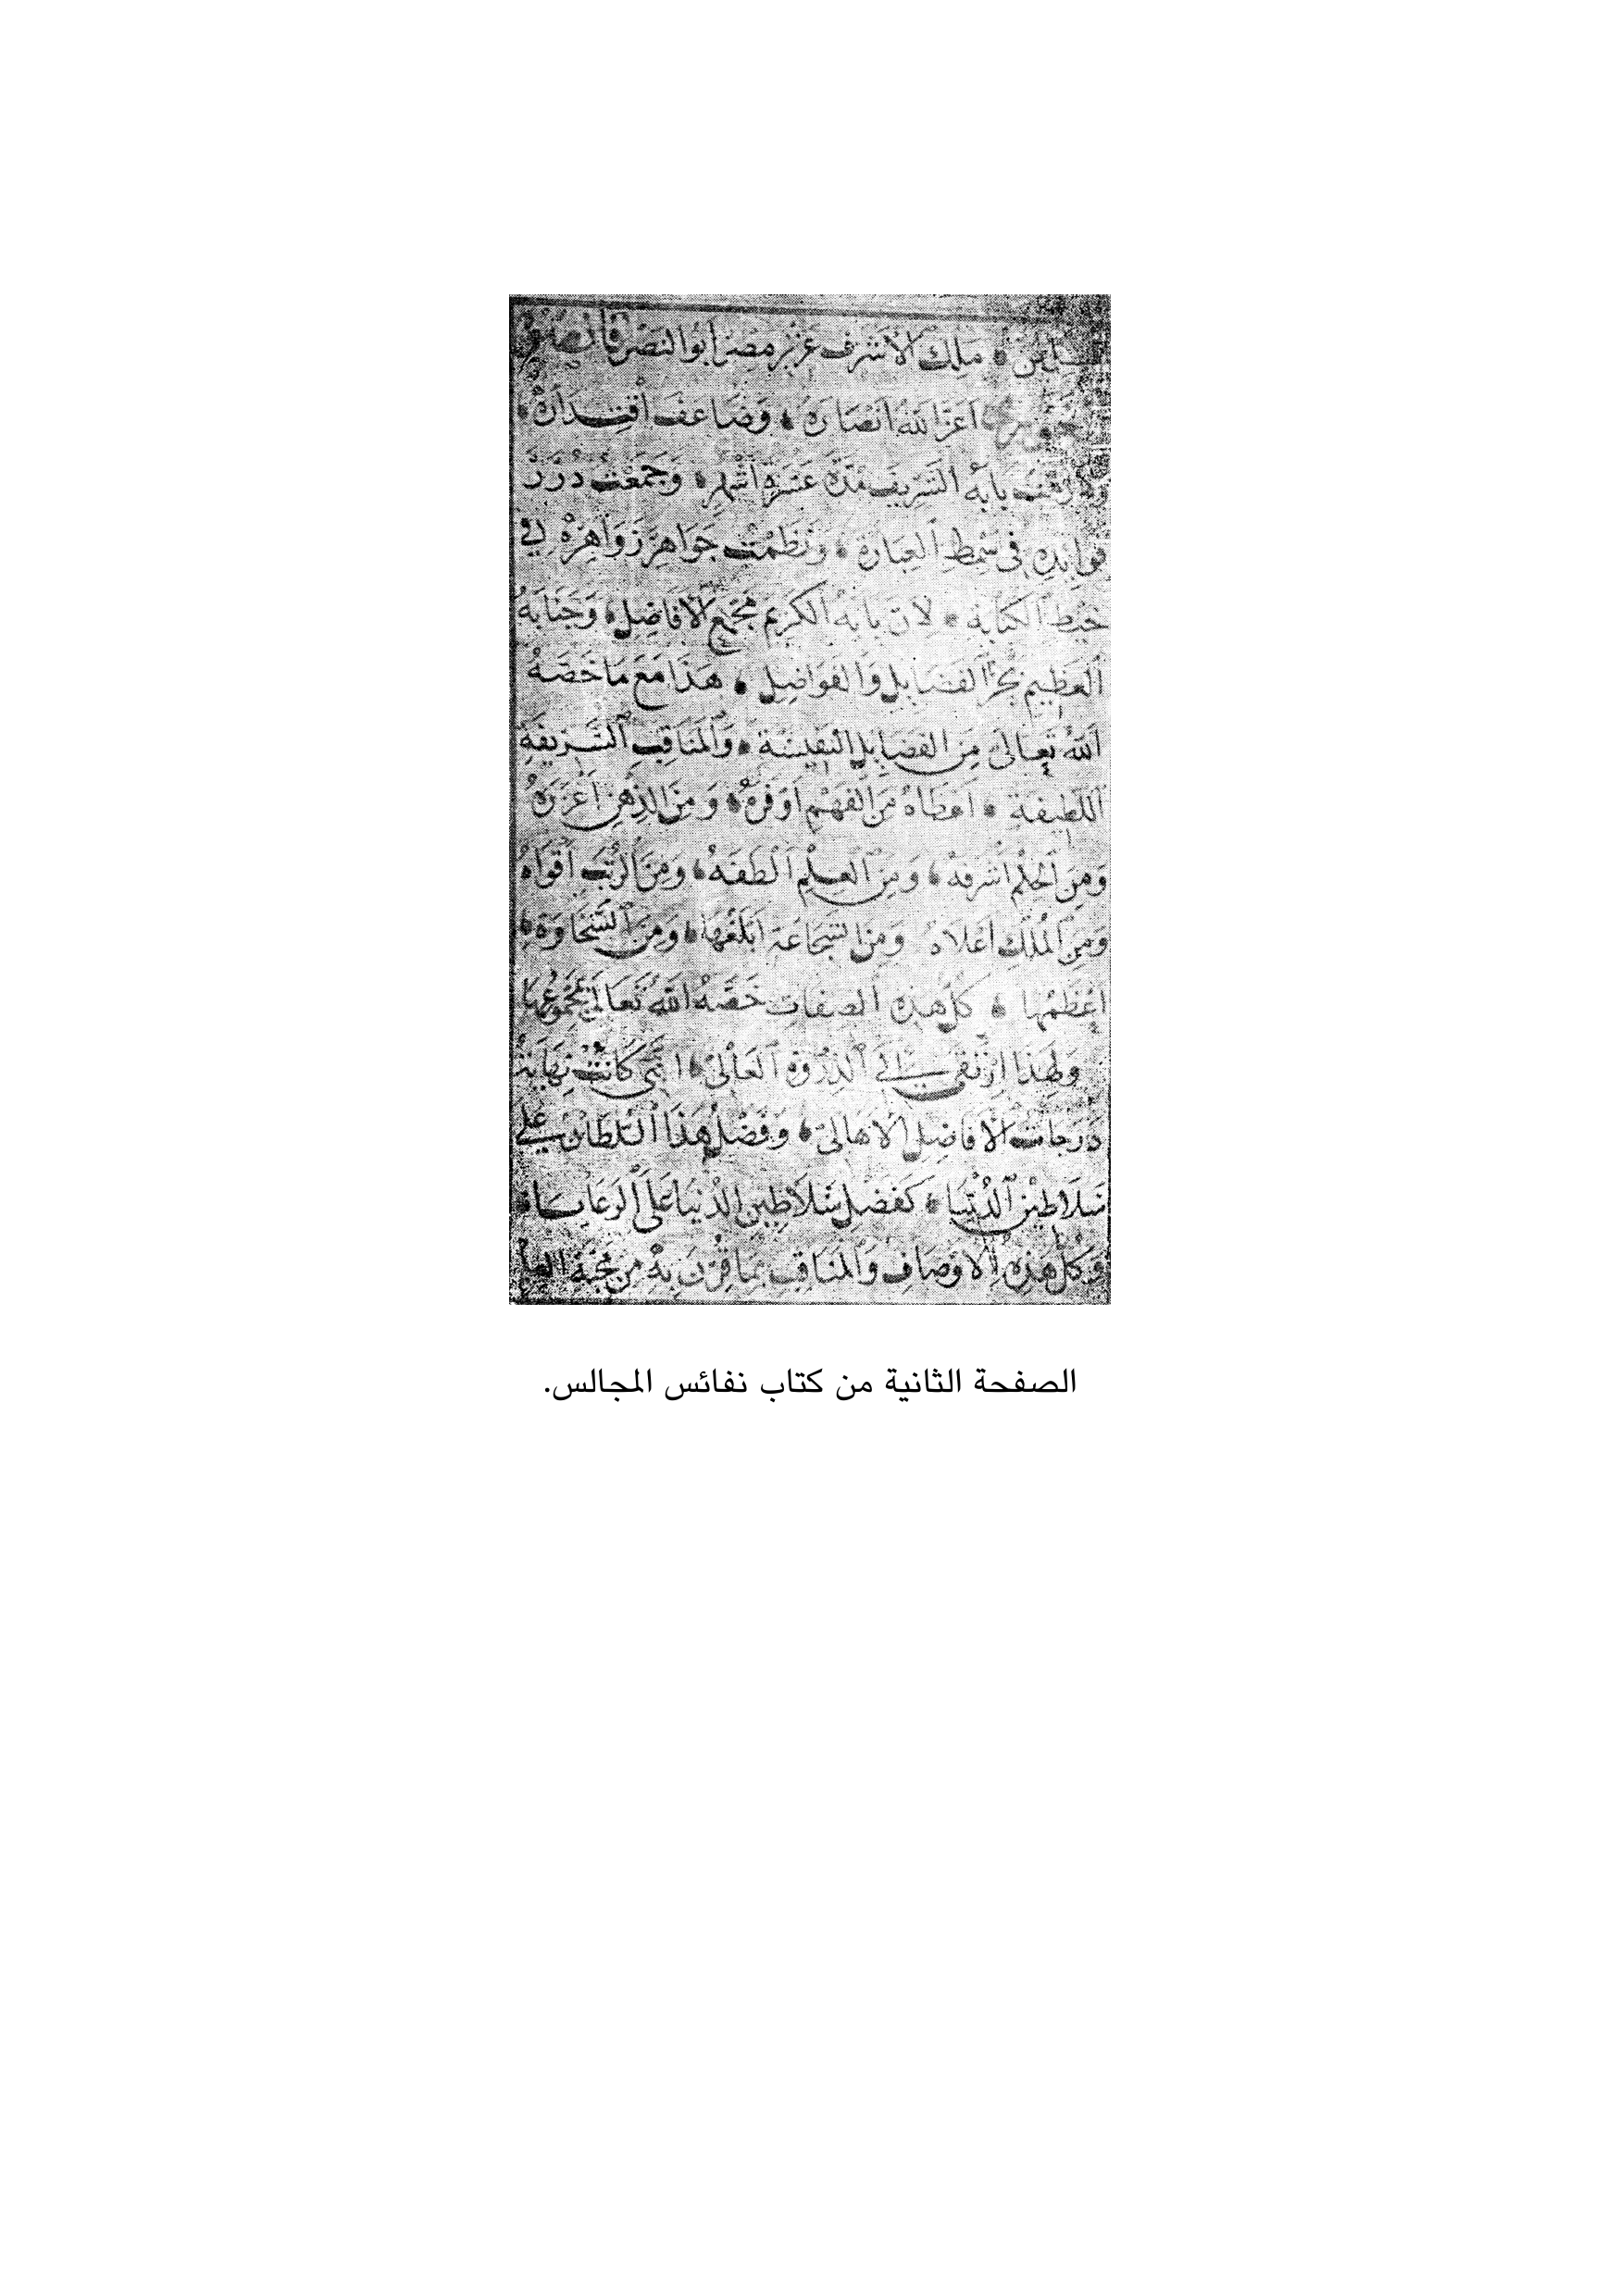 مَلِكُ الأَشْرَف عَزِيزِ مِصْرَ أَبُو النَّصْر قَانْصُوه
أَعَزَّ اللهُ أَنْصَارَهُ وَضَاعَفَ اقْتِدَارَهُ
بَابَهُ الشَّرِيف مُدَّةَ عَشَرَةِ أَشْهُرٍ وَجَمَعْتُ دُرَرَ
فَوَايِدِهِ فِي سَمْطِ الْعِبَارَةِ وَنَظَمْتُ جَوَاهِرَ زَوَاهِرِهِ فِي
خَيْطِ الْكِتَابَةِ لِأَنَّ بَابَهُ الْكَرِيم مَجْمَعُ الْأَفَاضِلِ وَجَنَابَهُ
الْعَظِيم بَحْرُ الْفَضَايِل وَالْفَوَاضِل هَذَا مَعَ مَا خَصَّهُ
اللهُ تَعَالَى مِنَ الْفَضَايِلِ النَّفِيسَةِ وَالْمَنَاقِبِ الشَّرِيفَةِ
اللَّطِيفَة أَعْطَاهُ مِنَ الْفَهْمِ أَوْفَرَهُ وَمِنَ الذِّهْنِ أَغْزَرَهُ
وَمِنَ الْحِلْمِ أَشْرَفَهُ وَمِنَ الْعِلْمِ أَلْطَفَهُ وَمِنَ الرُّتَب أَقْوَاهُ
وَمِنَ الْمُلْكِ أَعْلَاهُ وَمِنَ الشَّجَاعَةِ أَبْلَغَهَا وَمِنَ السَّخَاوَةِ
أَعْظَمَهَا كُلُّ هَذِهِ الصِّفَات خَصَّهُ اللهُ تَعَالَى بِمَجْمُوعِهَا
وَلِهَذَا ارْتَقَى إِلَى الذِّرْوَةِ الْعَالِيِّ الَّتِي كَانَتْ نِهَايَةُ
دَرَجَاتِ الْأَفَاضِلِ الْأَهَالِيّ وَفَضْلُ هَذَا السُّلْطَان عَلَى
سَلَاطِينِ الدُّنْيَا كَفَضْلِ سَلَاطِينِ الدُّنْيَا عَلَى الرَّعَايَا
وَكُلُّ هَذِهِ الْأَوْصَافِ وَالْمَنَاقِبِ بِمَا قُرِنَ بِهِ مِنْ مَحَبَّةِ
الصفحة الثانية من كتاب نفائس المجالس.